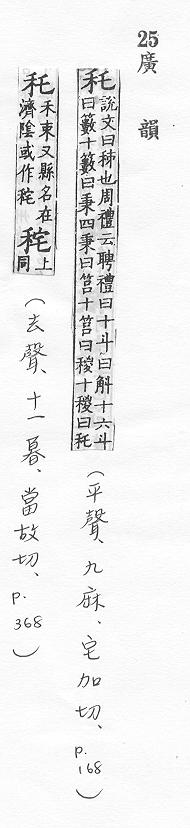 25廣韻
秅說文曰秭也周禮云聘禮曰十斗曰斛十六斗
曰籔十籔曰秉四秉曰筥十筥曰稯十稯曰秅
(平聲、九麻、宅加切、p.168)
秅禾束又縣名在
濟陰或作䅊上同
(去聲、十一暮、當故切、p.368)